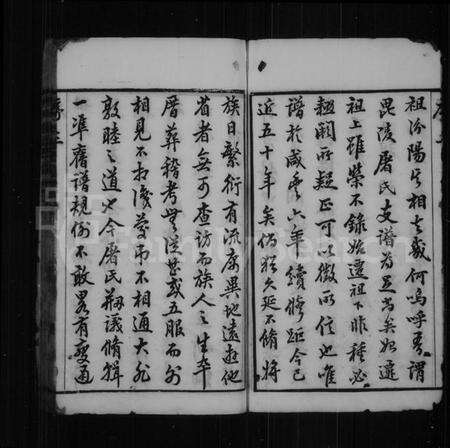 祖汾陽者相去幾何嗚呼莫謂
毘陵屠氏支譜為足當矣如遷
祖上雖榮不錄始遷祖下非種必
鋤闕所疑正可以徵所信也唯
譜於咸豐六年續修距今已
近五十年矣倘猶久延不脩將
族日繁衍有流寓異地遠遊他
省者無可查訪而族人之生卒
厝葬稽考無從甚或五服而外
相見不相識慶弔不相通大非
敦睦之道也今屠氏籌議脩輯
一準舊譜規例不敢畧有變通